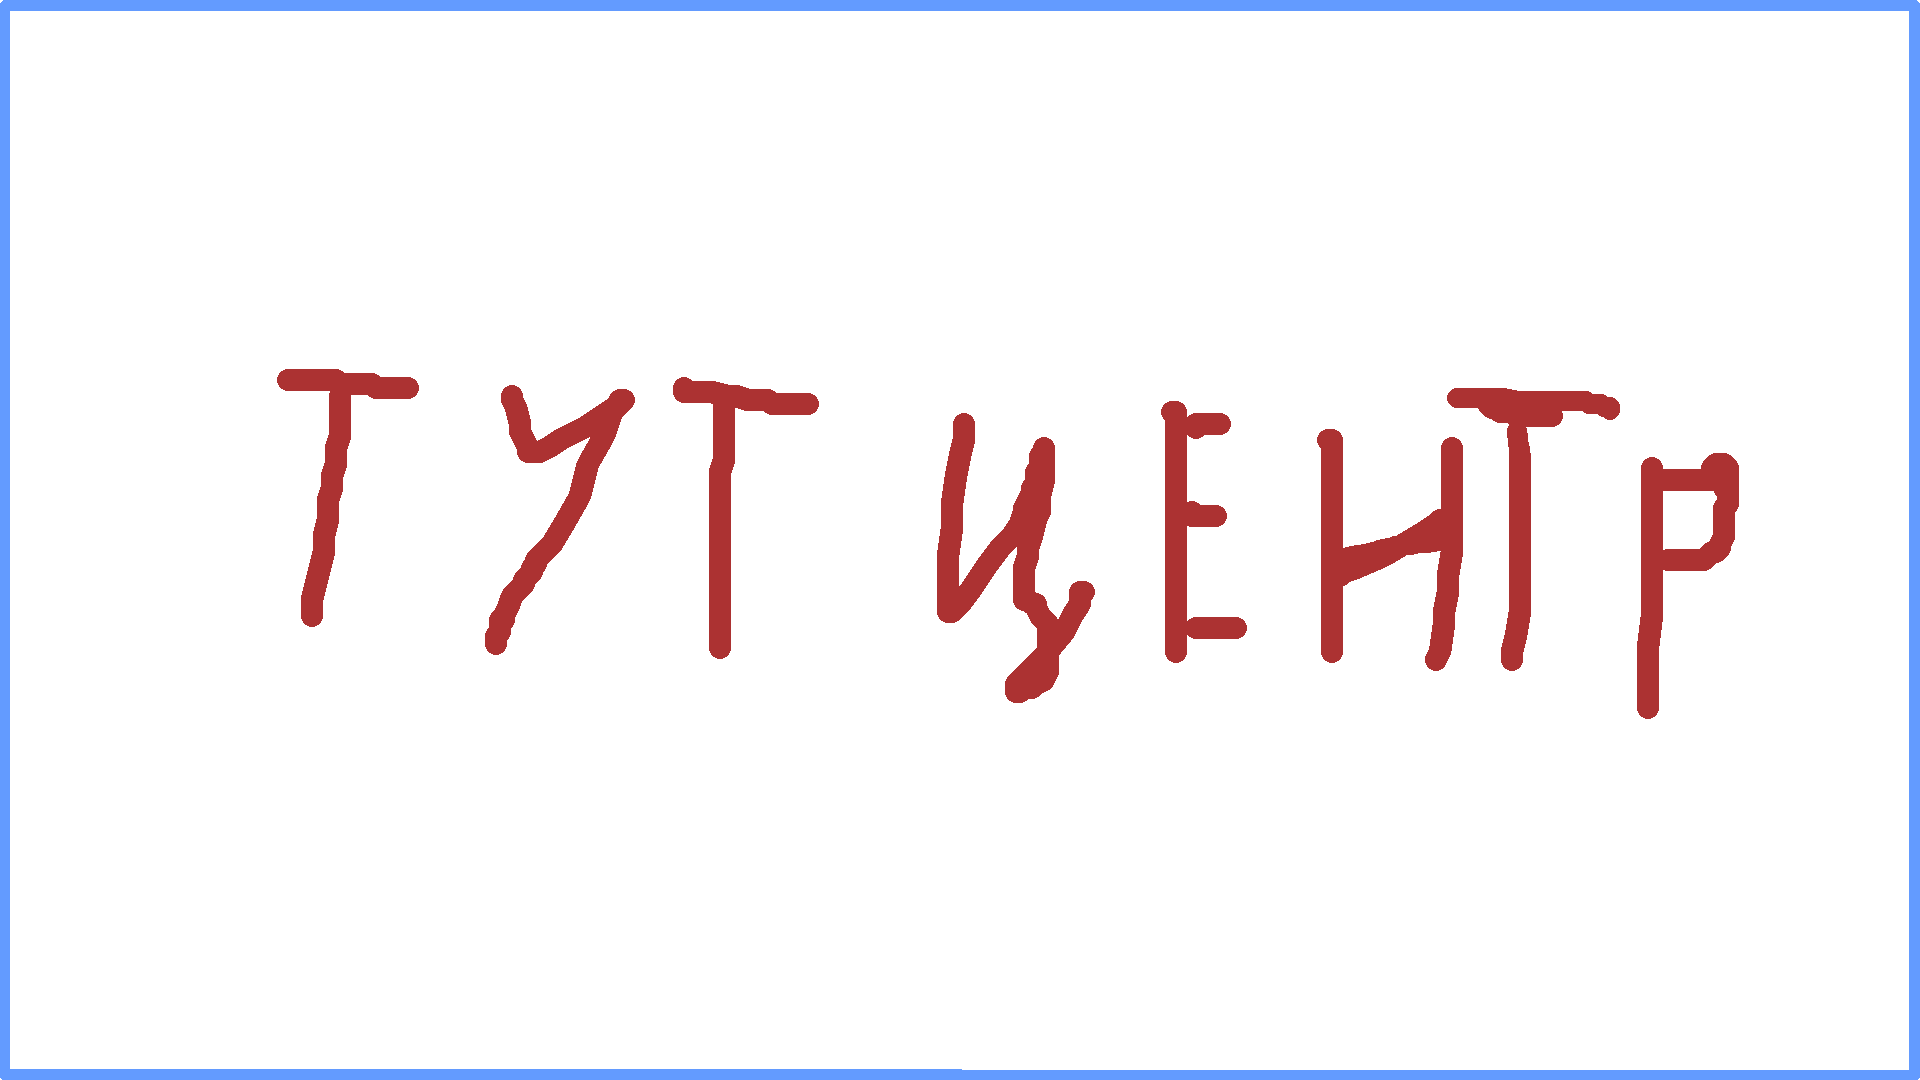 ТУТ ЦЕНТР